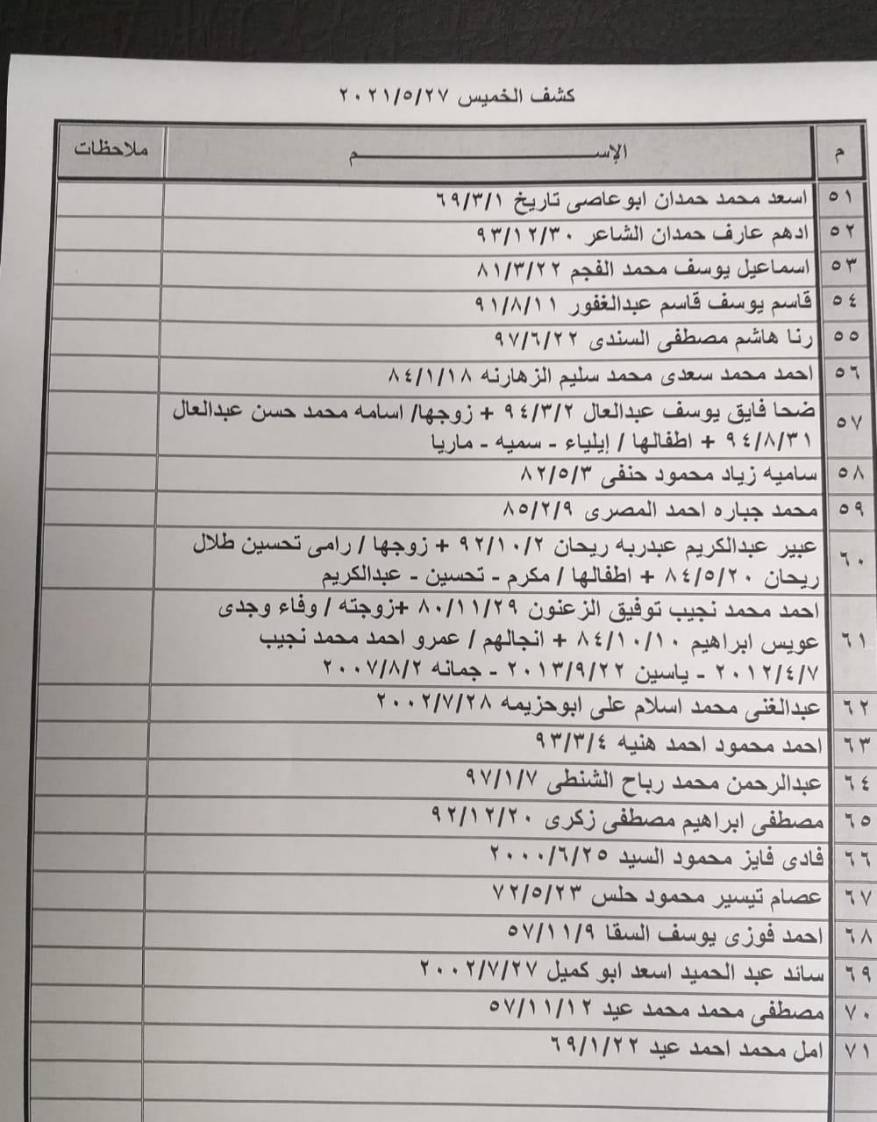 كشف الخميس ٢٠٢١/٥/٢٧
م الإســــــم ملاحظات
٥١ اسعد محمد حمدان ابو عاصى تاريخ ٦٩/٣/١
٥٢ ادهم عارف حمدان الشاعر ٩٣/١٢/٣٠
٥٣ اسماعيل يوسف محمد الفجم ٨١/٣/٢٢
٥٤ قاسم يوسف قاسم عبدالغفور ٩١/٨/١١
٥٥ رنا هاشم مصطفى السندى ٩٧/٦/٢٢
٥٦ احمد محمد سعدى محمد سليم الزهارنه ٨٤/١/١٨
٥٧ ضحا فايق يوسف عبدالعال ٩٤/٣/٢ + زوجها/ اسامه محمد حسن عبدالعال
٩٤/٨/٣١ + اطفالها / إيلياء - سميه - ماريا
٥٨ ساميه زياد محمود حنفى ٨٢/٥/٣
٥٩ محمد جباره احمد المصرى ٨٥/٢/٩
٦٠ عبير عبدالكريم عبدربه ريحان ٩٢/١٠/٢ + زوجها / رامى تحسين طلال
ريحان ٨٤/٥/٢٠ + اطفالها / مكرم - تحسين - عبدالكريم
٦١ احمد محمد نجيب توفيق الزعنون ٨٠/١١/٢٩ +زوجته / وفاء وجدى
عويس ابراهيم ٨٤/١٠/١٠ + انجالهم / عمرو احمد محمد نجيب
٢٠١٢/٤/٧ - ياسين ٢٠١٣/٩/٢٢ - جمانه ٢٠٠٧/٨/٢
٦٢ عبدالغنى محمد اسلام على ابوحزيمه ٢٠٠٢/٧/٢٨
٦٣ احمد محمود احمد هنيه ٩٣/٣/٤
٦٤ عبدالرحمن محمد رباح الشنطى ٩٧/١/٧
٦٥ مصطفى ابراهيم مصطفى زكرى ٩٢/١٢/٢٠
٦٦ فادى فايز محمود السيد ٢٠٠٠/٦/٢٥
٦٧ عصام تيسير محمود حلس ٧٢/٥/٢٣
٦٨ احمد فوزى يوسف السقا ٥٧/١١/٩
٦٩ سائد عبد الحميد اسعد ابو كميل ٢٠٠٢/٧/٢٧
٧٠ مصطفى محمد محمد عيد ٥٧/١١/١٢
٧١ امل محمد احمد عيد ٦٩/١/٢٢